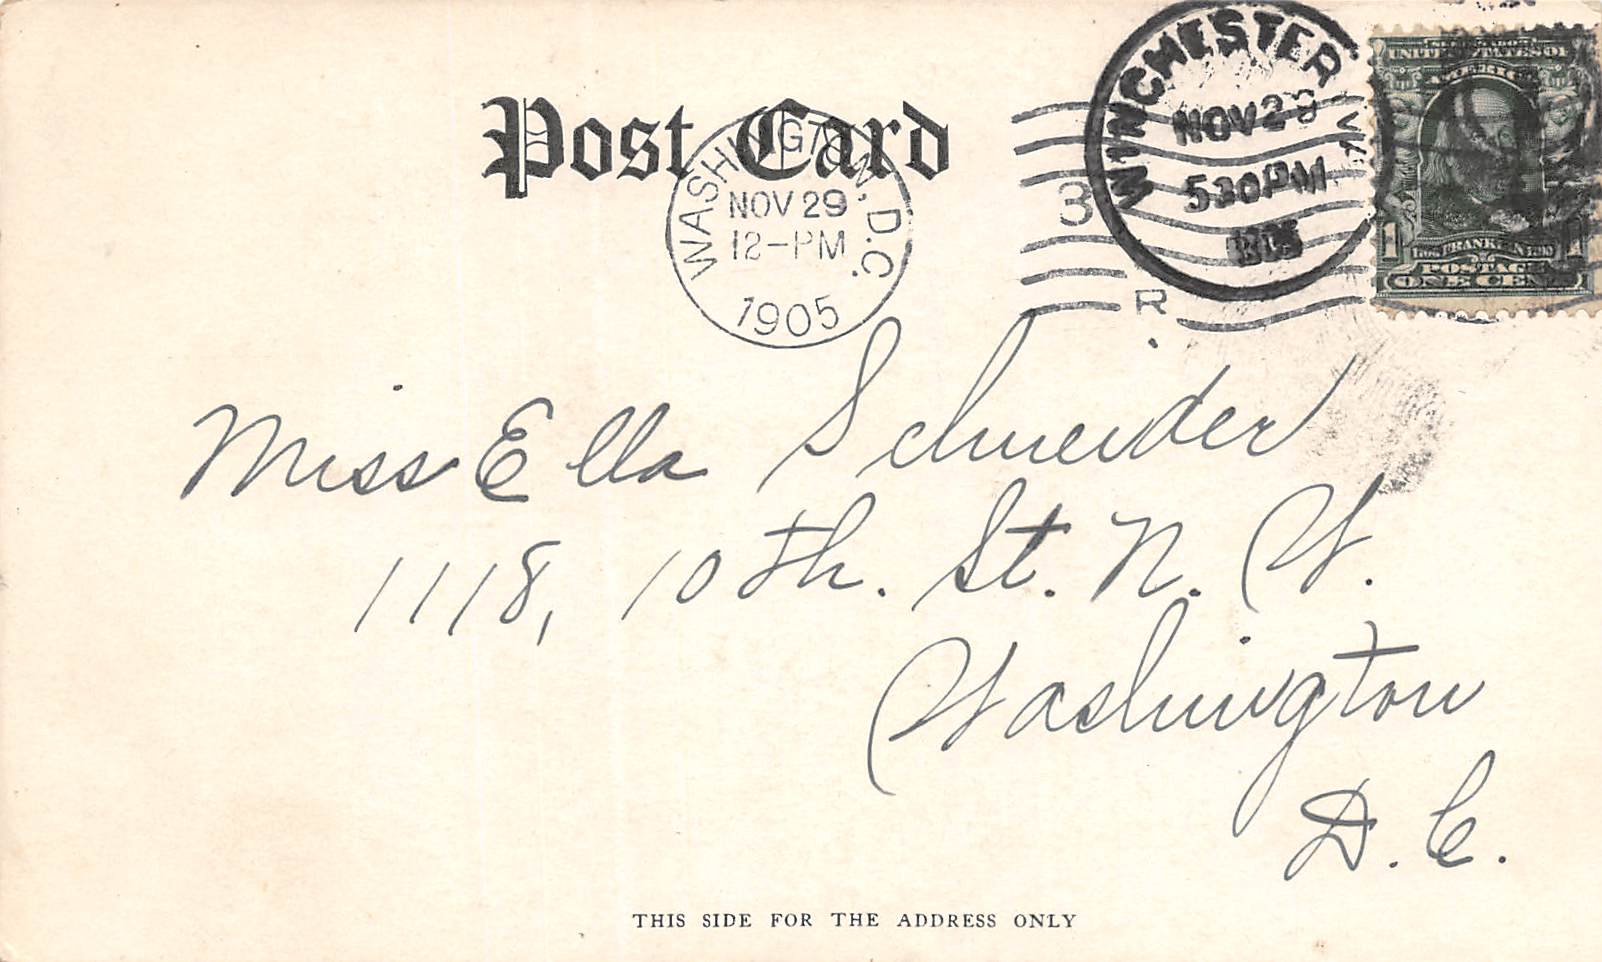 Post Card
WASHINGTON, D.C.
NOV 29
12-PM
1905
3
R
WINCHESTER
NOV 28
530PM
1905
UNITED STATES OF
AMERICA
1 FRANKLIN 1
POSTAGE
ONE CENT
Miss Ella Schneider
1118, 10th. St. N. W.
Washington
D. C.
THIS SIDE FOR THE ADDRESS ONLY